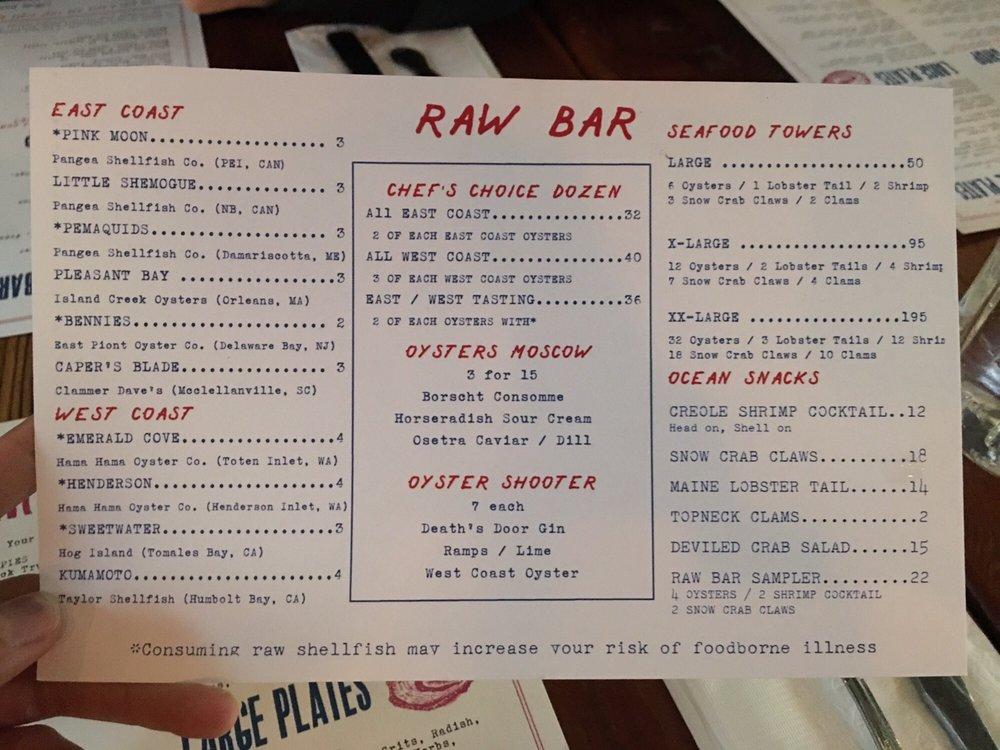 EAST COAST
*PINK MOON...................... 3
Pangea Shellfish Co. (PEI, CAN)
LITTLE SHEMOGUE................ 3
Pangea Shellfish Co. (NB, CAN)
*PEMAQUIDS...................... 3
Pangea Shellfish Co. (Damariscotta, ME)
PLEASANT BAY ...................3
Island Creek Oysters (Orleans, MA)
*BENNIES........................ 2
East Piont Oyster Co. (Delaware Bay, NJ)
CAPER'S BLADE.................. 3
Clammer Dave's (Mcclellanville, SC)
WEST COAST
*EMERALD COVE..................4
Hama Hama Oyster Co. (Toten Inlet, WA)
*HENDERSON.....................4
Hama Hama Oyster Co. (Henderson Inlet, WA)
*SWEETWATER....................3
Hog Island (Tomales Bay, CA)
KUMAMOTO.......................4
Taylor Shellfish (Humbolt Bay, CA)
RAW BAR
CHEF'S CHOICE DOZEN
All EAST COAST...............32
2 OF EACH EAST COAST OYSTERS
ALL WEST COAST...............40
3 OF EACH WEST COAST OYSTERS
EAST / WEST TASTING..........36
2 OF EACH OYSTERS WITH*
OYSTERS MOSCOW
3 for 15
Borscht Consomme
Horseradish Sour Cream
Osetra Caviar / Dill
OYSTER SHOOTER
7 each
Death's Door Gin
Ramps / Lime
West Coast Oyster
SEAFOOD TOWERS
LARGE .......................50
6 Oysters / 1 Lobster Tail / 2 Shrimp
3 Snow Crab Claws / 2 Clams
X-LARGE .....................95
12 Oysters / 2 Lobster Tails / 4 Shrimp
7 Snow Crab Claws / 4 Clams
XX-LARGE ...................195
32 Oysters / 3 Lobster Tails / 12 Shri
18 Snow Crab Claws / 10 Clams
OCEAN SNACKS
CREOLE SHRIMP COCKTAIL..12
Head on, Shell on
SNOW CRAB CLAWS.........18
MAINE LOBSTER TAIL......14
TOPNECK CLAMS............2
DEVILED CRAB SALAD......15
RAW BAR SAMPLER.........22
4 OYSTERS / 2 SHRIMP COCKTAIL
2 SNOW CRAB CLAWS
*Consuming raw shellfish may increase your risk of foodborne illness
LARGE PLATES
Grits, Radish,
LARGE PLATES
PLATES
BAR
Your